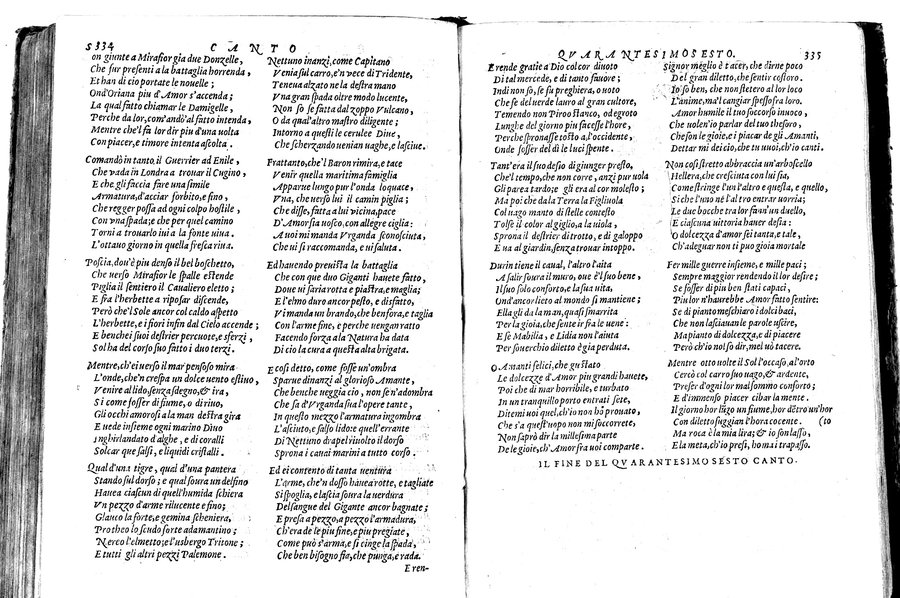 S334 CANTO
on giunte a Mirafior già due Donzelle,
Che fur presenti a la battaglia horrenda,
Et han di ciò portate le nouelle;
Ond'Oriana piu d'Amor s'accenda;
La qual fatto chiamar le Damigelle,
Perche da lor, com'andò'l fatto intenda,
Mentre che'l fa lor dir piu d'una uolta
Con piacer, e timore intenta ascolta.
Comandò in tanto, il Guerrier ad Enile,
Che vada in Londra a trouar il Cugino,
E che gli faccia fare una simile
Armatura, d'acciar forbito, e fino,
Che regger possa ad ogni colpo hostile,
Con vna spada; e che per quel camino
Torni a trouarlo iui a la fonte uiua.
L'ottauo giorno in quella fresca riua.
Poscia, dou'è piu denso il bel boschetto,
Che uerso Mirafior le spalle estende
Piglia il sentiero il Caualiero eletto;
E fra l'herbette a riposar discende,
Però che'l Sole ancor col caldo aspetto
L'herbette, e i fiori infin dal Cielo accende;
E benche i suoi destrier percuote, e sferzi,
Sol ha del corso suo fatto i duo terzi.
Mentre, ch'ei uerso il mar pensoso mira
L'onde, che'n crespa un dolce uento estiuo,
Venire al lido, senza sdegno, & ira,
Si come fosser di fiume, o di riuo,
Gli occhi amorosi a la man destra gira
E uede insieme ogni marino Diuo
Inghirlandato d'alghe, e di coralli
Solcar que salsi, e liquidi cristalli.
Qual d'una tigre, qual d'una pantera
Stando sul dorso; e qual soura un delfino
Hauea ciascun di quell'humida schiera
Vn pezzo d'arme rilucente e fino;
Glauco la forte, e gemina scheniera,
Protheo lo scudo forte adamantino;
Nereo l'elmetto; e l'usbergo Tritone;
E tutti gli altri pezzi Palemone.
Nettuno inanzi, come Capitano
Venia sul carro, e'n vece di Tridente,
Teneua alzato ne la destra mano
Vna gran spada oltre modo lucente,
Non so se fatta dal zoppo Vulcano,
O da qual'altro mastro diligente;
Intorno a questi le cerulee Diue,
Che scherzando uenian uaghe, e lasciue.
Frattanto, che'l Baron rimira, e tace
Venir quella maritima famiglia
Apparue lungo pur l'onda loquace,
Vna, che uerso lui il camin piglia;
Che disse, fatta a lui vicina, pace
D'Amor sia uosco, con allegre ciglia:
A uoi mi manda Vrganda sconosciuta,
Che ui si raccomanda, e ui saluta.
Ed hauendo preuista la battaglia
Che con que duo Giganti hauete fatto,
Doue ui saria rotta e piastra, e maglia;
E l'elmo duro ancor pesto, e disfatto,
Vi manda un brando, che ben fora, e taglia
Con l'arme fine, e perche uengan ratto
Facendo forza a la Natura ha data
Di ciò la cura a questa alta brigata.
E così detto, come foss'un'ombra
Sparue dinanzi al glorioso Amante,
Che benche ueggia ciò, non se n'adombra
Che sa d'Vrganda sui l'opere tante,
In questo mezzo l'armatura ingombra
L'asciuto, e salso lido: e quell'errante
Di Nettuno drapel riuolto il dorso
Sprona i cauai marini a tutto corso.
Ed ei contento di tanta uentura
L'arme, che'n dosso hauea rotte, e tagliate
Si spoglia, e lascia soura la uerdura
Del sangue del Gigante ancor bagnate;
E presa a pezzo, a pezzo l'armadura,
Ch'era de le piu fine, e piu pregiate,
Come può s'arma, e si cinge la spada,
Che ben bisogno fia, che punga, e rada.
E ren-
QVARANTESIMOSESTO. 335
E rende gratie a Dio col cor diuoto
Di tal mercede, e di tanto fauore;
Indi non so, se fu preghiera, o uoto
Che fe del uerde lauro al gran cultore,
Temendo non Piroo stanco, od egroto
Lunghe del giorno piu facesse l'hore,
Perche spronasse tosto a l'occidente,
Onde fosser del dì le luci spente.
Tant'era il suo desio di giunger presto.
Che'l tempo, che non corre, anzi pur uola
Gli parea tardo; e gli era al cor molesto;
Ma poi che da la Terra la Figliuola
Col uago manto di stelle contesto
Tolse il color al giglio, a la uiola,
Sprona il destrier di trotto, e di galoppo
E ua al giardin, senza trouar intoppo.
Durin tiene il caual, l'altro l'aita
A salir soura il muro, oue è'l suo bene,
Il suo solo conforto, e la sua uita,
Ond'ancor lieto al mondo si mantiene;
Ella gli da la man, quasi smarrita
Per la gioia, che sente ir fra le uene:
E se Mabilia, e Lidia non l'aiuta
Per souerchio diletto è già perduta.
O Amanti felici, che gustato
Le dolcezze d'Amor piu grandi hauete,
Poi che di mar horribile, e turbato
In un tranquillo porto entrati sete,
Ditemi uoi quel, ch'io non hò prouato,
Che s'a quest'uopo non mi soccorrete,
Non saprò dir la millesima parte
De le gioie, ch'Amor fra uoi comparte.
Signor meglio è tacer, che dirne poco
Del gran diletto, che sentir costoro.
Io so ben, che non stetero al lor loco
L'anime, ma'l cangiar spesso fra loro.
Amor humile il tuo soccorso inuoco,
Che uolen'io parlar del tuo thesoro.
Che son le gioie, e i piacer de gli Amanti,
Dettar mi dei ciò, che tu uuoi, ch'io canti.
Non così stretto abbraccia un'arboscello
Hellera, che cresciuta con lui sia,
Come stringe l'un l'altro e questa, e quello,
Si che l'uno né l'altro entrar uorria;
Le due bocche tra lor fan'un duello,
E ciascuna uittoria hauer desia:
O dolcezza d'amor sei tanta, e tale,
Ch'adeguar non ti puo gioia mortale
Fer mille guerre insieme, e mille paci;
Sempre maggior rendendo il lor desire;
Se fosser di piu ben stati capaci,
Piu lor n'haurebbe Amor fatto sentire:
Se di pianto meschiaro i dolci baci,
Che non lasciauan le parole uscire,
Ma pianto di dolcezza, e di piacere
Però ch'io nol so dir, mel uò tacere.
Mentre otto uolte il Sol l'occaso, al'orto
Cercò col carro suo uago, & ardente,
Preser d'ogni lor mal sommo conforto;
E d'immenso piacer cibar la mente.
Il giorno hor lūgo un fiume, hor dētro un'hor
Con diletto fuggian l'hora cocente. (to
Ma roca è la mia lira; & io son lasso,
E la meta, ch'io presi, homai trapasso.
IL FINE DEL QVARANTESIMOSESTO CANTO.